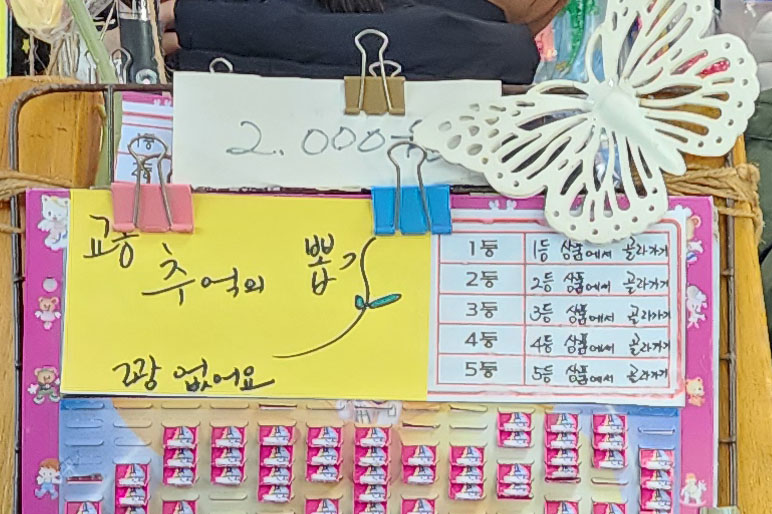 2.000
교동
추억의 뽑기
꽝 없어요
1등 1등 상품에서 골라가기
2등 2등 상품에서 골라가기
3등 3등 상품에서 골라가기
4등 4등 상품에서 골라가기
5등 5등 상품에서 골라가기